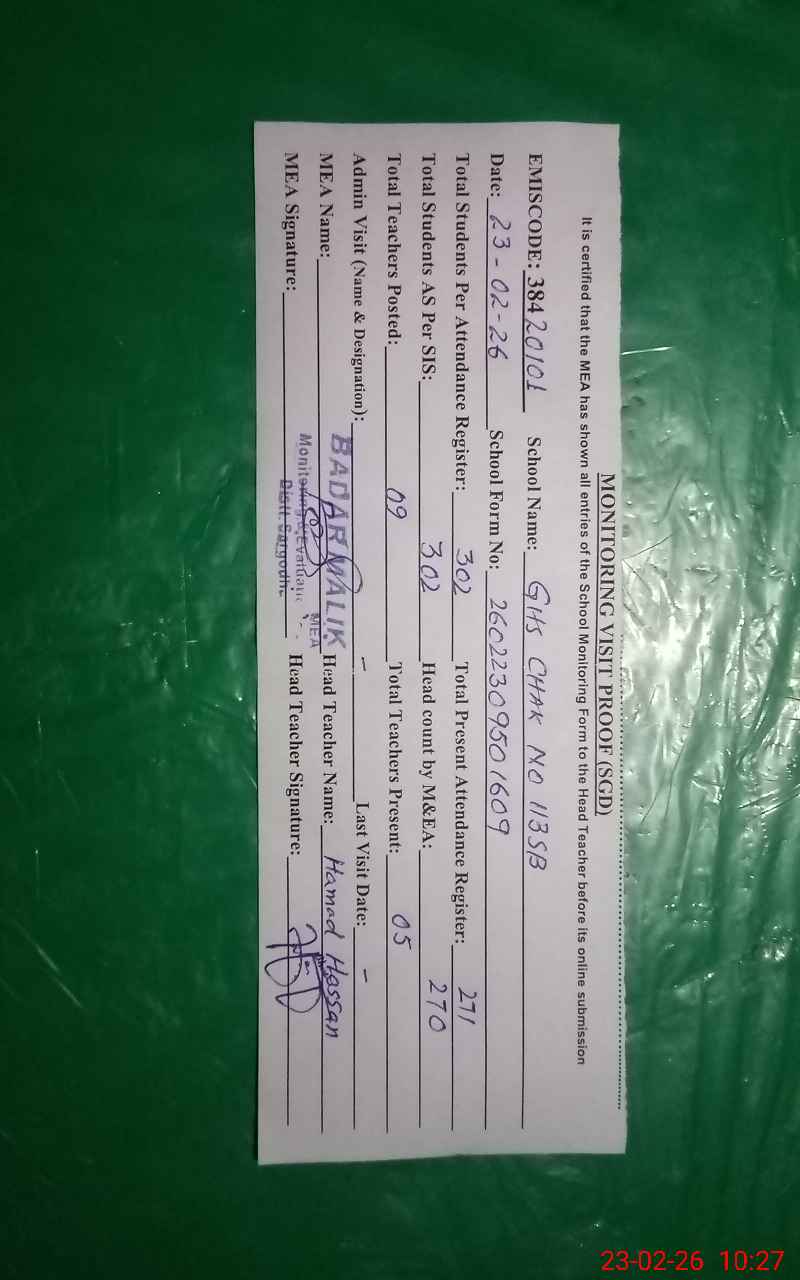 MONITORING VISIT PROOF (SGD)
It is certified that the MEA has shown all entries of the School Monitoring Form to the Head Teacher before its online submission
EMISCODE: 38420101 School Name: GHS CHAK NO 113SB
Date: 23-02-26 School Form No: 26022309501609
Total Students Per Attendance Register: 302 Total Present Attendance Register: 271
Total Students AS Per SIS: 302 Head count by M&EA: 270
Total Teachers Posted: 09 Total Teachers Present: 05
Admin Visit (Name & Designation): - Last Visit Date: -
MEA Name: BADAR MALIK Head Teacher Name: Hamad Hassan
MEA
MEA Signature: Distt. Sargodha Head Teacher Signature:
23-02-26 10:27